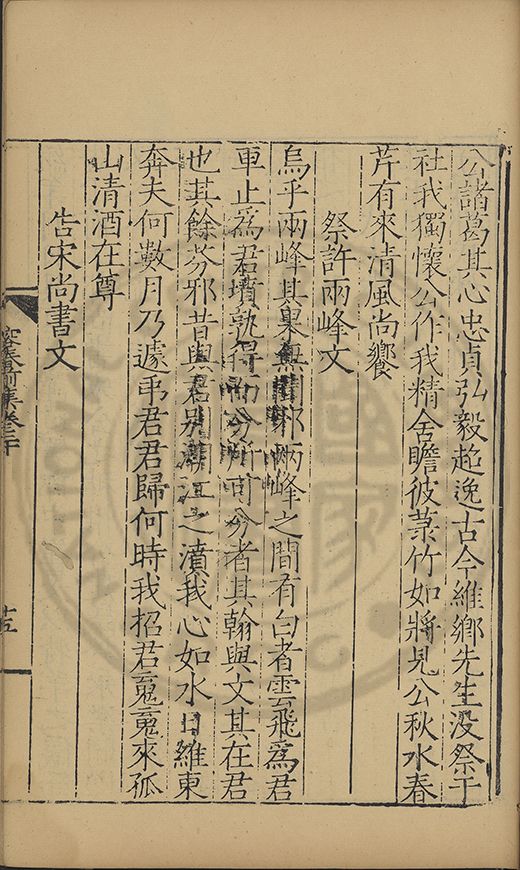 公諸葛其心忠貞弘毅超逸古今維鄉先生没祭于
社我獨懷公作我精舍瞻彼菉竹如將見公秋水春
芹有來清風尚饗
祭許兩峰文
烏乎兩峰其果無情邪兩峰之間有白者雲飛爲君
車止爲君墳孰得而分所可分者其翰與文其在君
也其餘芬邪昔與君別江之濆我心如水日維東
奔夫何數月乃遽弔君君歸何時我招君䰟䰟來孤
山清酒在尊
告宋尚書文
集卷二十
十五